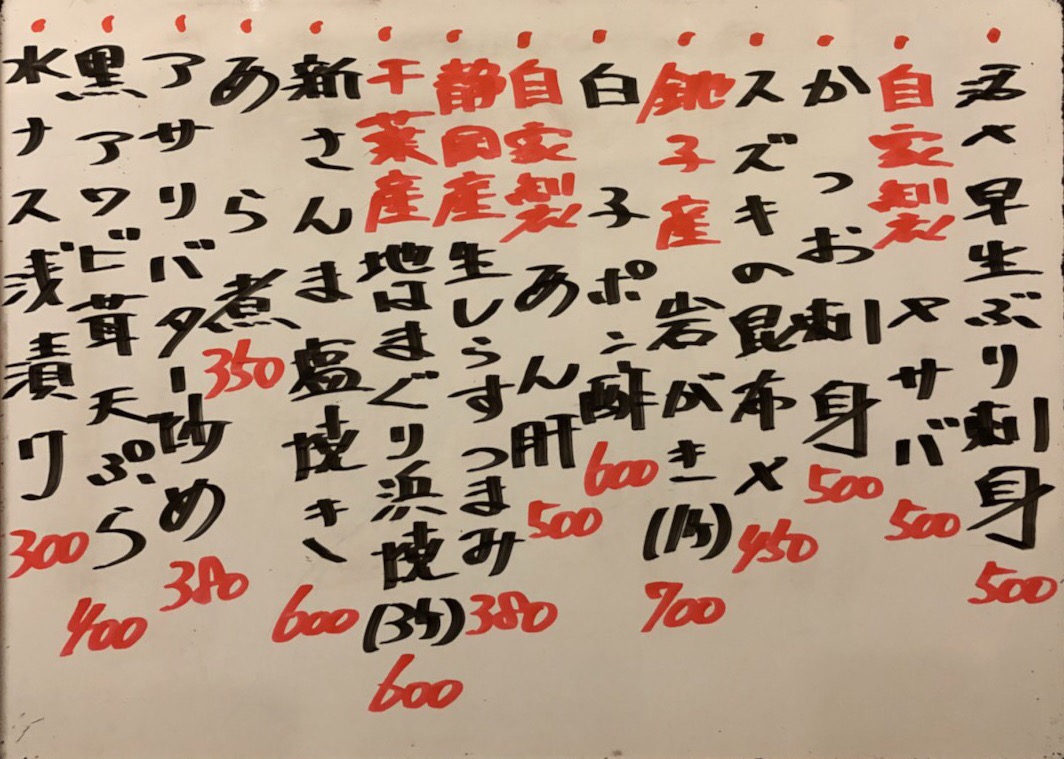 活〆早生ぶり刺身 500
自家製 〆サバ 500
かつお刺身 500
スズキの昆布〆 450
銚子産 岩がき(1ヶ) 700
白子ポン酢 600
自家製 あん肝 500
静岡産 生しらすつまみ 380
千葉産 地はまぐり浜焼(3ヶ) 600
新さんま塩焼き 600
あら煮 350
アサリバター炒め 380
黒アワビ茸天ぷら 400
水ナス浅漬け 300